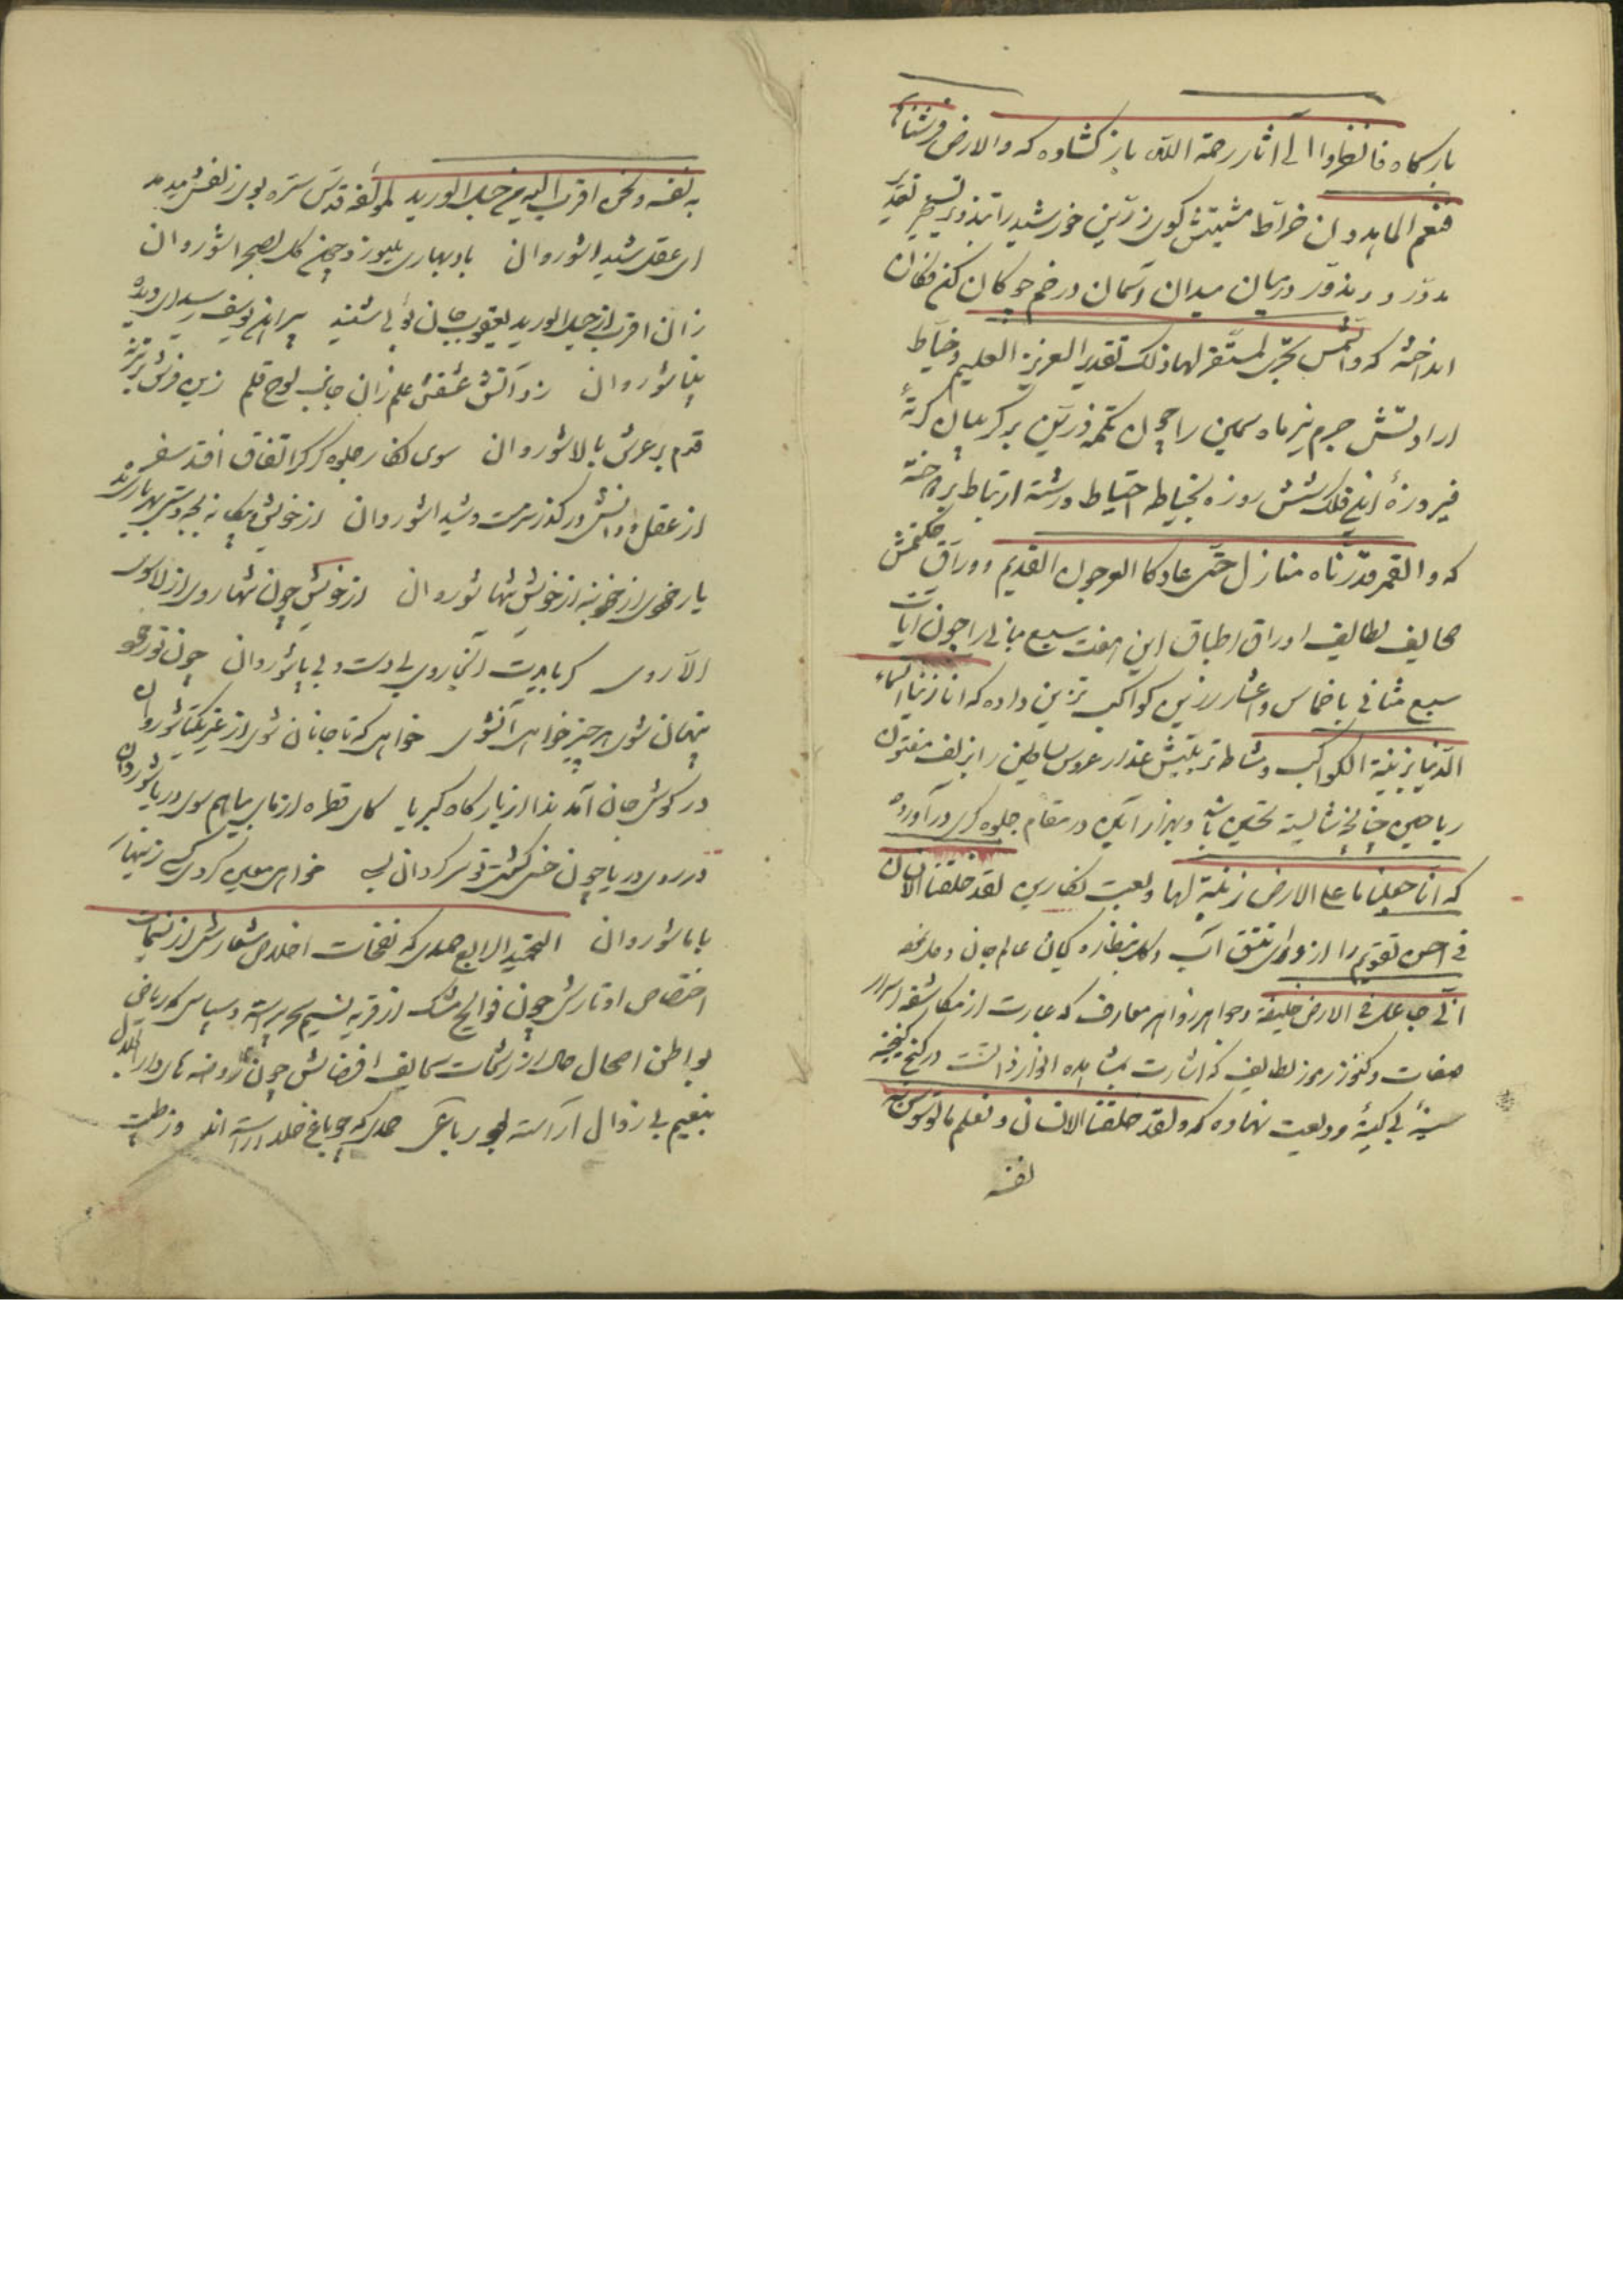 بارگاه فانظروا الی آثار رحمة اللّه باز گشاده که والارض فرشناها
فنعم الماهدون خرّاط مشیتش گوی زرّین خورشید را بتدویر
مدوّر و در میان میدان آسمان در خم چوکان کن فکان
انداخته که والشمس تجری لمستقر لها ذلک تقدیر العزیز العلیم و خیّاط
ارادتش جرم نیر ماه سیمین را چون تکمه زرّین بر گریبان کرتهٔ
فیروزهٔ این فلک شش روزه بخیاطه احتیاط و رشته ارتباط بردوخته
که والقمر قدّرناه منازل حتّی عاد کالعرجون القدیم و ورّاق حکمتش
صحایف لطایف اوراق اطباق این هفت سبع مبانی را چون آیات
سبع مثانی باخماس و اعشار زرّین کواکب تزیین داده که انا زیّنا السماء
الدّنیا بزینة الکواکب و مشاطه تربیتش عذار عروس بساطین را بزلف مفتون
ریاحین چنانچه شایسته تحسین باشد و بهزار آیین در مقام جلوه گری در آورده
که انّا جعلنا ما علی الارض زینة لها و لعبت نگارین لقد خلقنا الانسان
فی احسن تقویم را از ورای تتق آب و گل بنظاره کیان عالم جان و دل
انّی جاعل فی الارض خلیفة و جواهر زواهر معارف که عبارت از مکاشفه اسرار
صفات و کنوز رموز لطایف که اشارت بمشاهده انوار ذاتست در کنج گنجینه
سینهٔ بی کینهٔ او ودیعت نهاده که ولقد خلقنا الانسان و نعلم ما توسوس به
نفسه
به نفسه و نحن اقرب الیه من حبل الورید لمؤلفه قدّس سّره بوی ز زلفش میدمد
ای عقل شیدا شو روان باد بهاری میوزد چون گل بصحرا شو روان
زان اقرب از حبل الورید یعقوب جان بوئی شنید پیراهن یوسف رسید ای دیده
بینا شو روان زد آتش عشقش علم زان جانب لوح و قلم زین فرش
قدم بر عرش بالا شو روان سوی نگار جلوه گر گر اتفاق افتد سفر
از عقل و دانش در گذر سرمست و شیدا شو روان از خویش بیگانه
یار خوی از خویش تنها شو روان از خویش چون تنها روی از لا سوی
الا روی گر بایدت آنجا روی بی دست و بی پا شو روان چون
پنهان شوی هر چیز خواهی آنشوی خواهی که تا جانان شوی از غیر یکتا شو روان
در گوش جان آمد ندا از بارگاه کبریا کای قطره از مایی بیا هم سوی دریا شو روان
در روی دریا چون خس گشتی تو سرگردان بسی خواهی معین گردی کسی زنهار
با ما شو روان التحمید الرابع حمدی که نفحات اخلاص شعارش از نسمات
اختصاص اوتارش چون فوایح مشک از قریه نسیم سحر برآسته و سپاسی که ریاض
بواطن اصحاب حال از رشحات سحایف افضالش چون روضه
بنعیم بی زوال آراسته بود رباعی حمدی که چو باغ خلد آراسته اند و ز